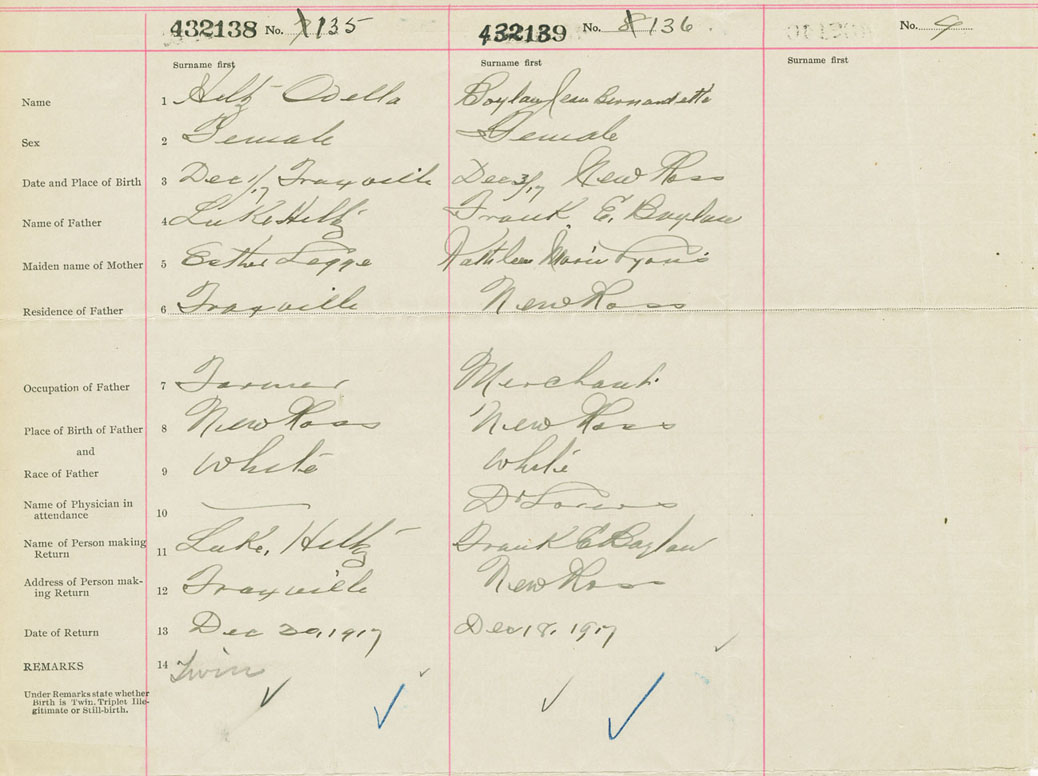 432138 No. 135
432139 No. 136
No. 9
Surname first
Surname first
Surname first
Name 1 Hiltz Odella
Boylan Jean Bernardette
Sex 2 Female
Female
Date and Place of Birth 3 Dec 1/17 Fraxville
Dec 3/17 New Ross
Name of Father 4 Luke Hiltz
Frank E. Boylan
Maiden name of Mother 5 Esther Legge
Kathleen Marie Lyons
Residence of Father 6 Fraxville
New Ross
Occupation of Father 7 Farmer
Merchant
Place of Birth of Father 8 New Ross
New Ross
and
Race of Father 9 White
White
Name of Physician in
attendance 10
Dr
Name of Person making
Return 11 Luke, Hiltz
Frank E Boylan
Address of Person mak-
ing Return 12 Fraxville
New Ross
Date of Return 13 Dec 20, 1917
Dec 18, 1917
REMARKS 14 Twin
Under Remarks state whether
Birth is Twin. Triplet Ille-
gitimate or Still-birth.